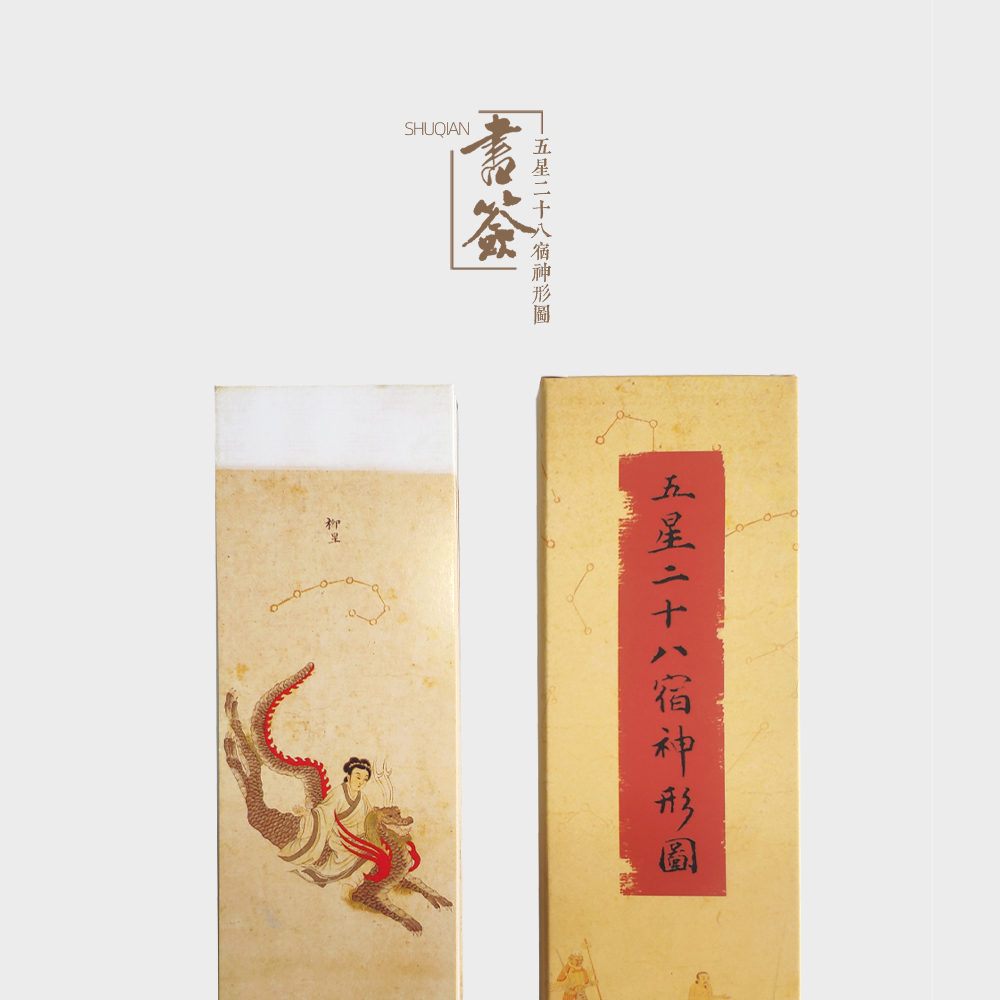 SHUQIAN
書簽
五星二十八宿神形圖
柳星
五星二十八宿神形圖